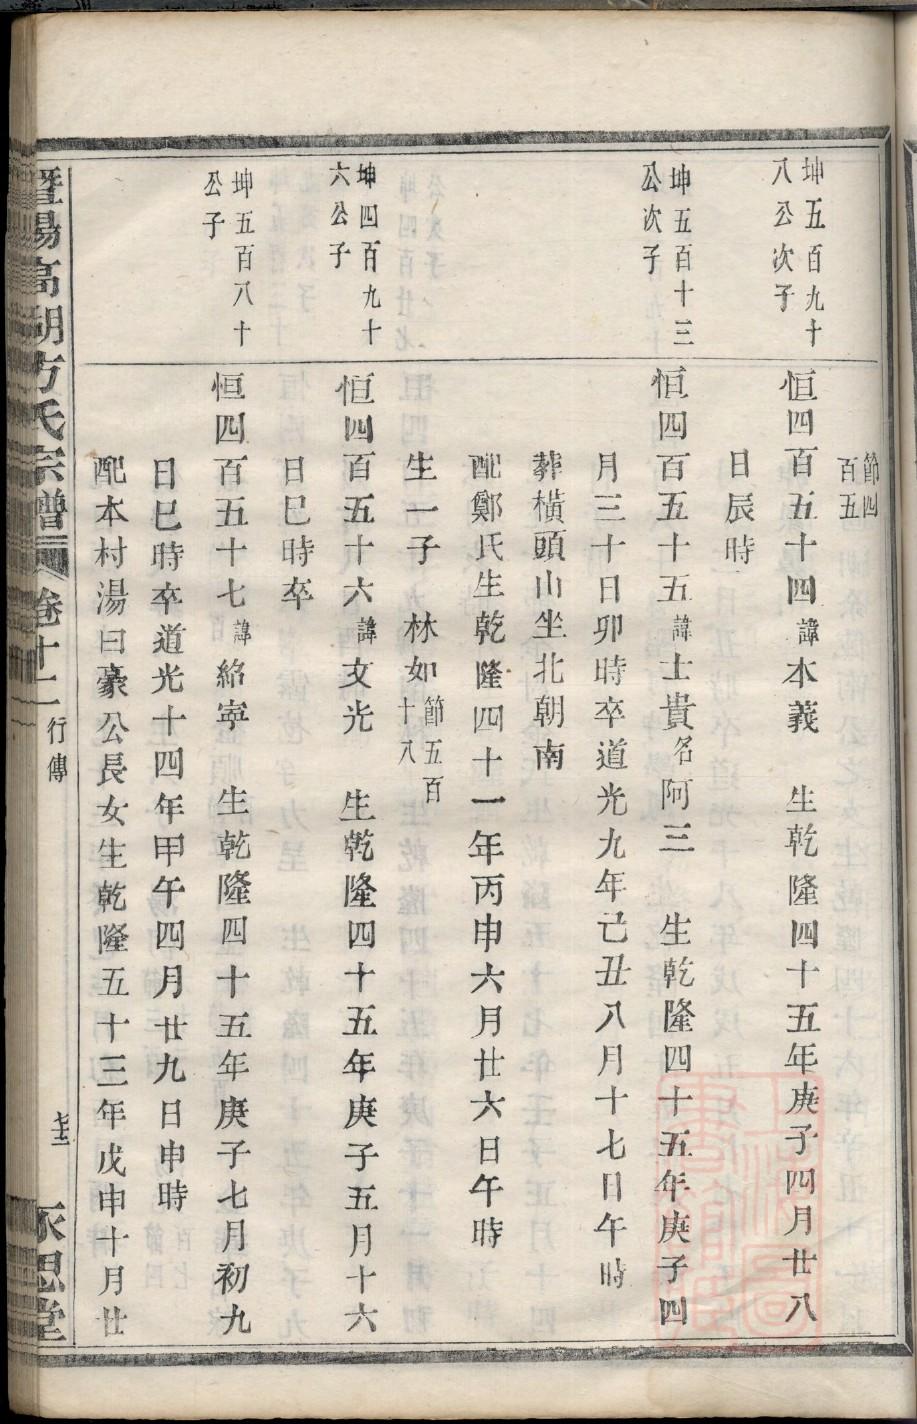 節四
百五
坤五百九十
八公次子
恒四百五十四諱本義　生乾隆四十五年庚子四月廿八
日辰時
坤五百十三
公次子
恒四百五十五諱士貴名阿三　生乾隆四十五年庚子四
月三十日卯時卒道光九年己丑八月十七日午時
葬橫頭山坐北朝南
配鄭氏生乾隆四十一年丙申六月廿六日午時
生一子　林如節五百十八
坤四百九十
六公子
恒四百五十六諱文光　生乾隆四十五年庚子五月十六
日巳時卒
坤五百八十
公子
恒四百五十七諱紹寧　生乾隆四十五年庚子七月初九
日巳時卒道光十四年甲午四月廿九日申時
配本村湯曰豪公長女生乾隆五十三年戊申十月廿
暨陽高湖方氏宗譜　卷十一　行傳　永思堂